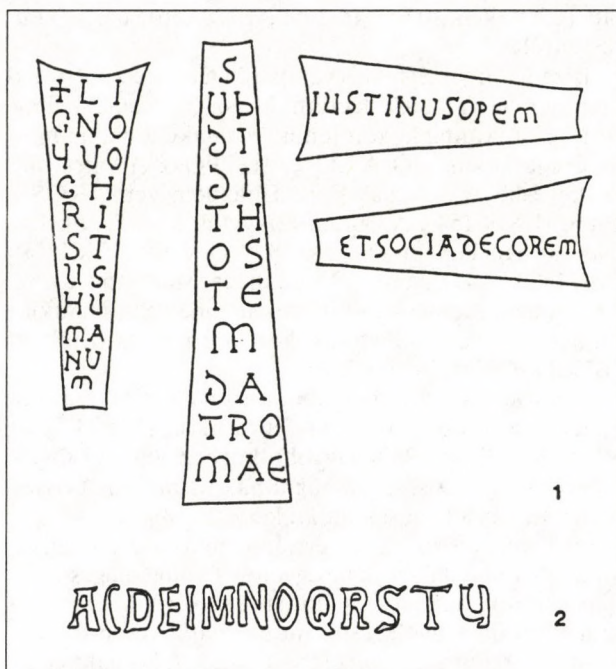 + L I
G N O
Q U O
C H
R I
S T
U S
H U
m A
N U
m
S
U b
D I
D I
T H
O S
T E
M
D A
T R O
M A E
IUSTINUSOPEm
ETSOCIADECOREm
1
ACDEIMNOQRSTU
2